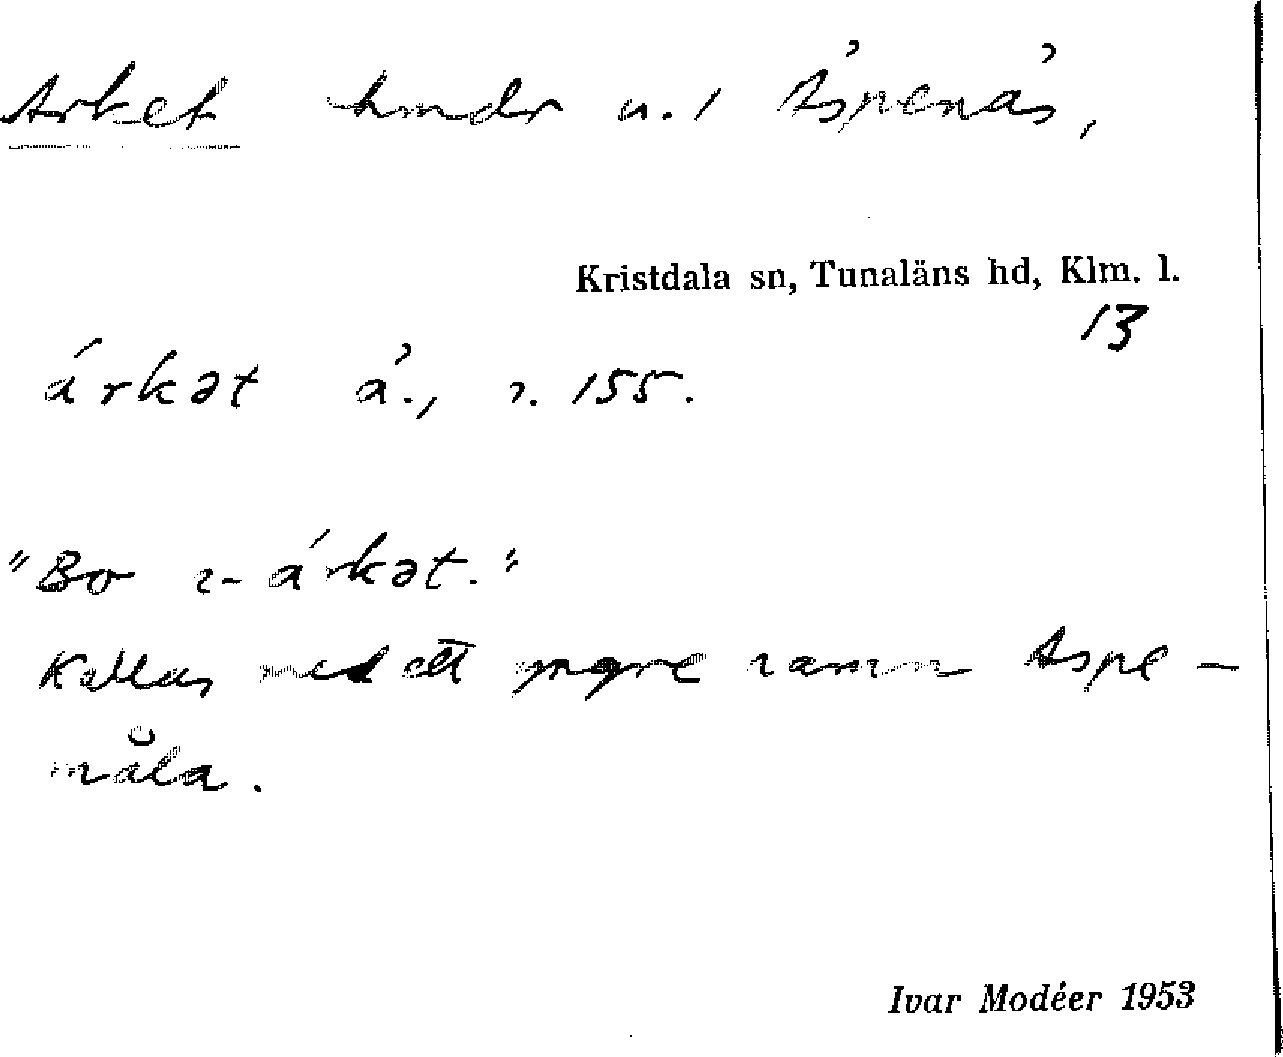 Arket hmdr u. / Äspenäs,
Kristdala sn, Tunaläns hd, Klm. l.
13
árkət å., n. 155.
"Bo i- árkət."
Kallas med ett yngre namn Aspe-
måla.
Ivar Modéer 1953